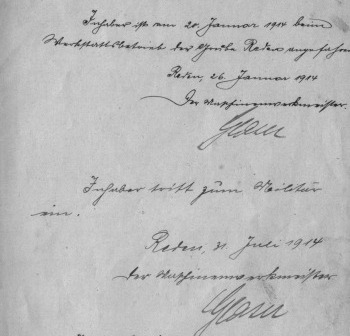 Inhaber ist am 20. Januar 1914 beim
Werkstattsbetrieb der Grube Reden angefahren
Reden, 26. Januar 1914
Der Maschinenwerkmeister.
Inhaber tritt zum Militär
ein.
Reden, 31. Juli 1914
Der Maschinenwerkmeister